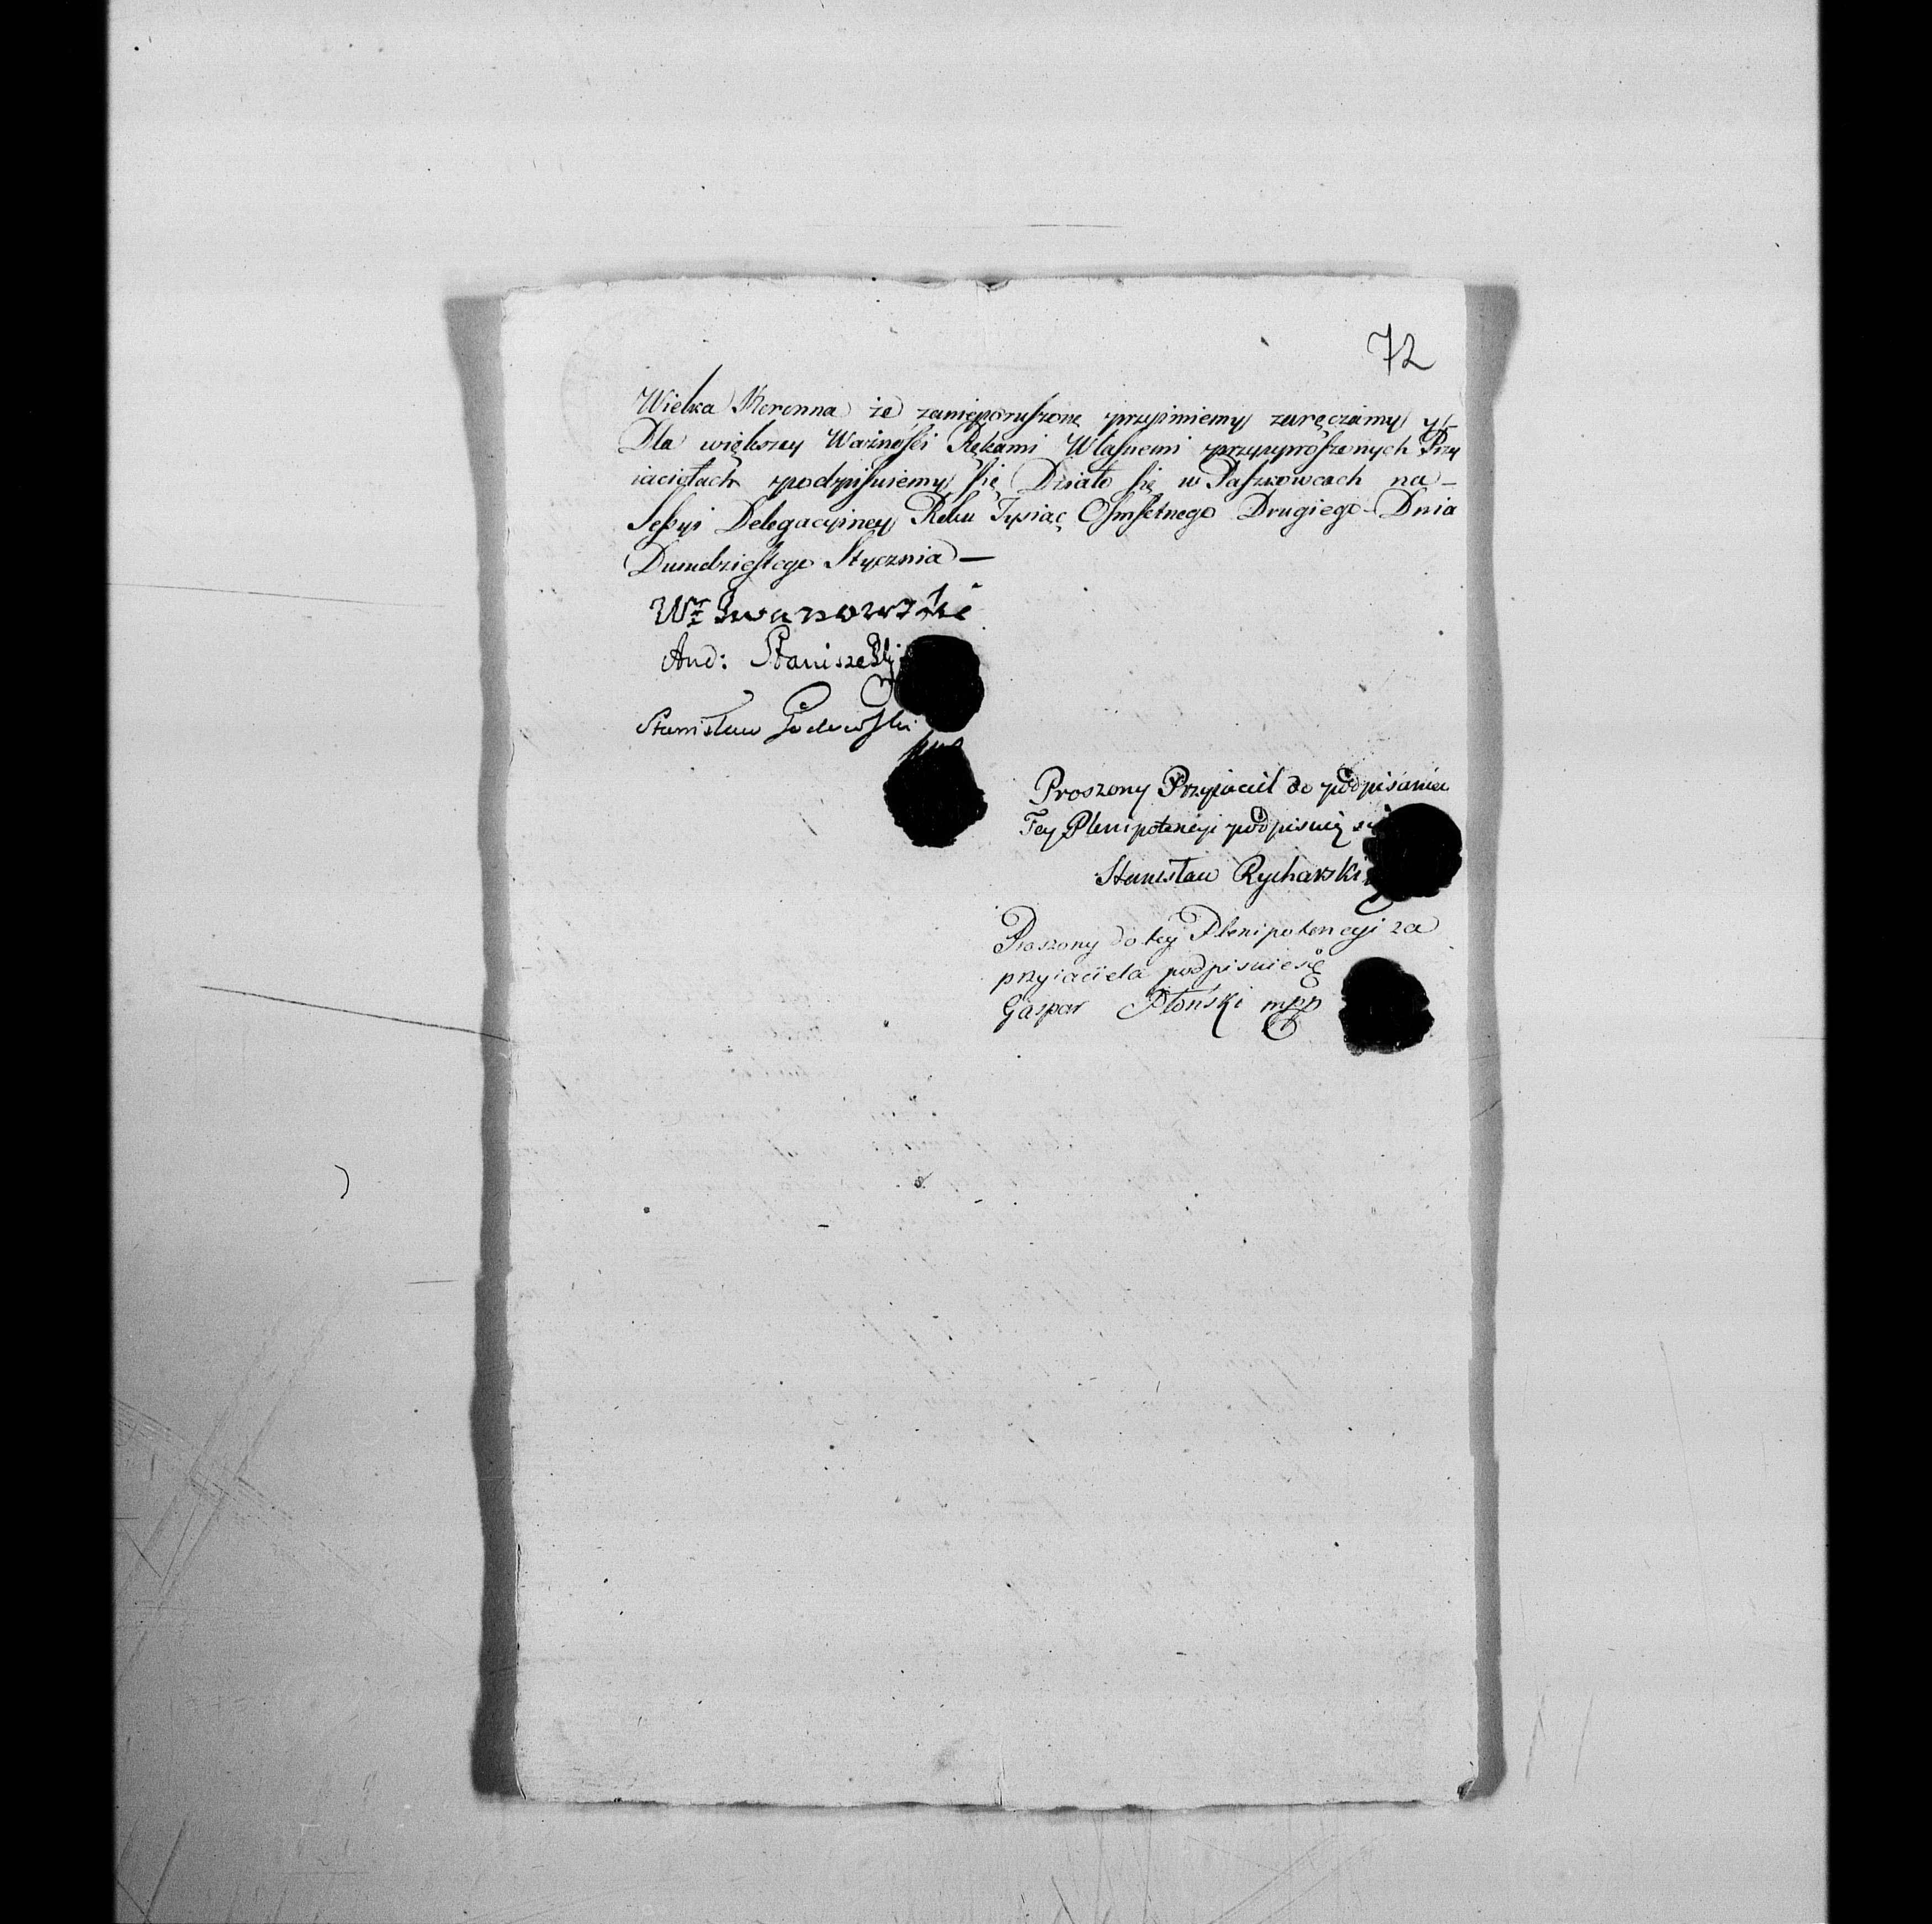 72
Wielka Koronna że zanieporuszone przyimiemy zaręczamy y
Dla większey Ważności Rękami Własnemi przyuproszonych Przy
iaciołach podpisuiemy się Działo się w Paszkowcach na
Sessyi Delegacyiney Roku Tysiąc Osmsetnego Drugiego Dnia
Dwudziestego Stycznia
Iwanowski
And: Staniszews
Stanisław
Proszony Przyiaciel do podpisania
Tey Plenipotencyi podpisuię się
Stanisław Rycharski
Proszony do tey Plenipotencyi za
przyiaciela podpisuie się
Gaspar Płoński mpp